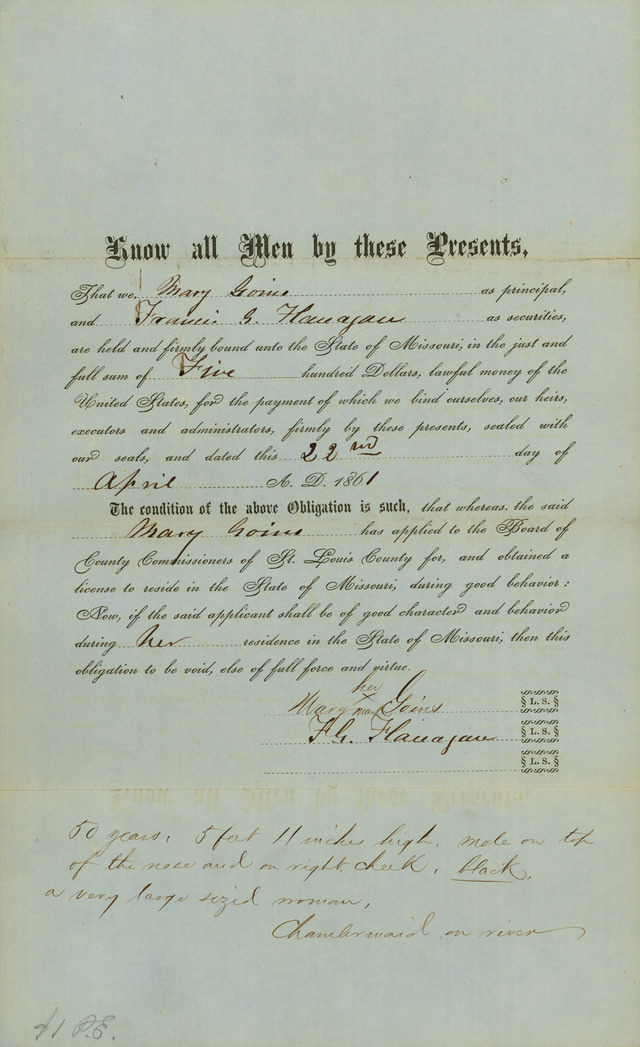 Know all Men by these Presents,
That we, Mary Goins as principal,
and Francis G. Flanagan as securities,
are held and firmly bound unto the State of Missouri, in the just and
full sum of Five hundred Dollars, lawful money of the
United States, for the payment of which we bind ourselves, our heirs,
executors and administrators, firmly by these presents, sealed with
our seals, and dated this 22nd day of
April A. D. 1861
The condition of the above Obligation is such, that whereas, the said
Mary Goins has applied to the Board of
County Commissioners of St. Louis County for, and obtained a
license to reside in the State of Missouri, during good behavior:
Now, if the said applicant shall be of good character and behavior
during her residence in the State of Missouri, then this
obligation to be void, else of full force and virtue.
her
Mary X Goins § L. S. §
mark
F. G. Flanagan § L. S. §
§ L. S. §
50 years, 5 feet 11 inches high, mole on top
of the nose and on right cheek, black,
a very large sized woman,
Chambermaid on river
P.E.